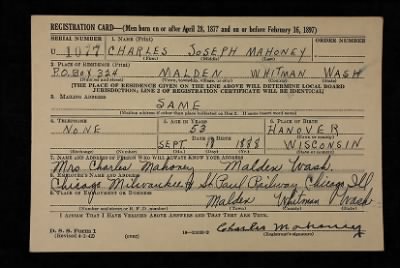 REGISTRATION CARD—(Men born on or after April 28, 1877 and on or before February 16, 1897)
SERIAL NUMBER 1. NAME (Print) ORDER NUMBER
U 1077 CHARLES JOSEPH MAHONEY
(First) (Middle) (Last)
2. PLACE OF RESIDENCE (Print)
P.O. BOX 324 MALDEN WHITMAN WASH
(Number and street) (Town, township, village, or city) (County) (State)
[THE PLACE OF RESIDENCE GIVEN ON THE LINE ABOVE WILL DETERMINE LOCAL BOARD
JURISDICTION; LINE 2 OF REGISTRATION CERTIFICATE WILL BE IDENTICAL]
3. MAILING ADDRESS
SAME
[Mailing address if other than place indicated on line 2. If same insert word same]
4. TELEPHONE 5. AGE IN YEARS 6. PLACE OF BIRTH
NONE 53 HANOVER
DATE OF BIRTH
SEPT 17 1888 WISCONSIN
(Mo.) (Day) (Yr.)
7. NAME AND ADDRESS OF PERSON WHO WILL ALWAYS KNOW YOUR ADDRESS
Mrs Charles Mahoney Malden Wash.
8. EMPLOYER'S NAME AND ADDRESS
Chicago Milwaukee & St Paul Railway Chicago Ill
9. PLACE OF EMPLOYMENT OR BUSINESS
Malden Whitman Wash
(Number and street or R. F. D. number) (Town) (County) (State)
I AFFIRM THAT I HAVE VERIFIED ABOVE ANSWERS AND THAT THEY ARE TRUE.
D. S. S. Form 1
(Revised 4-1-42) (over) Charles Mahoney
(Registrant's signature)